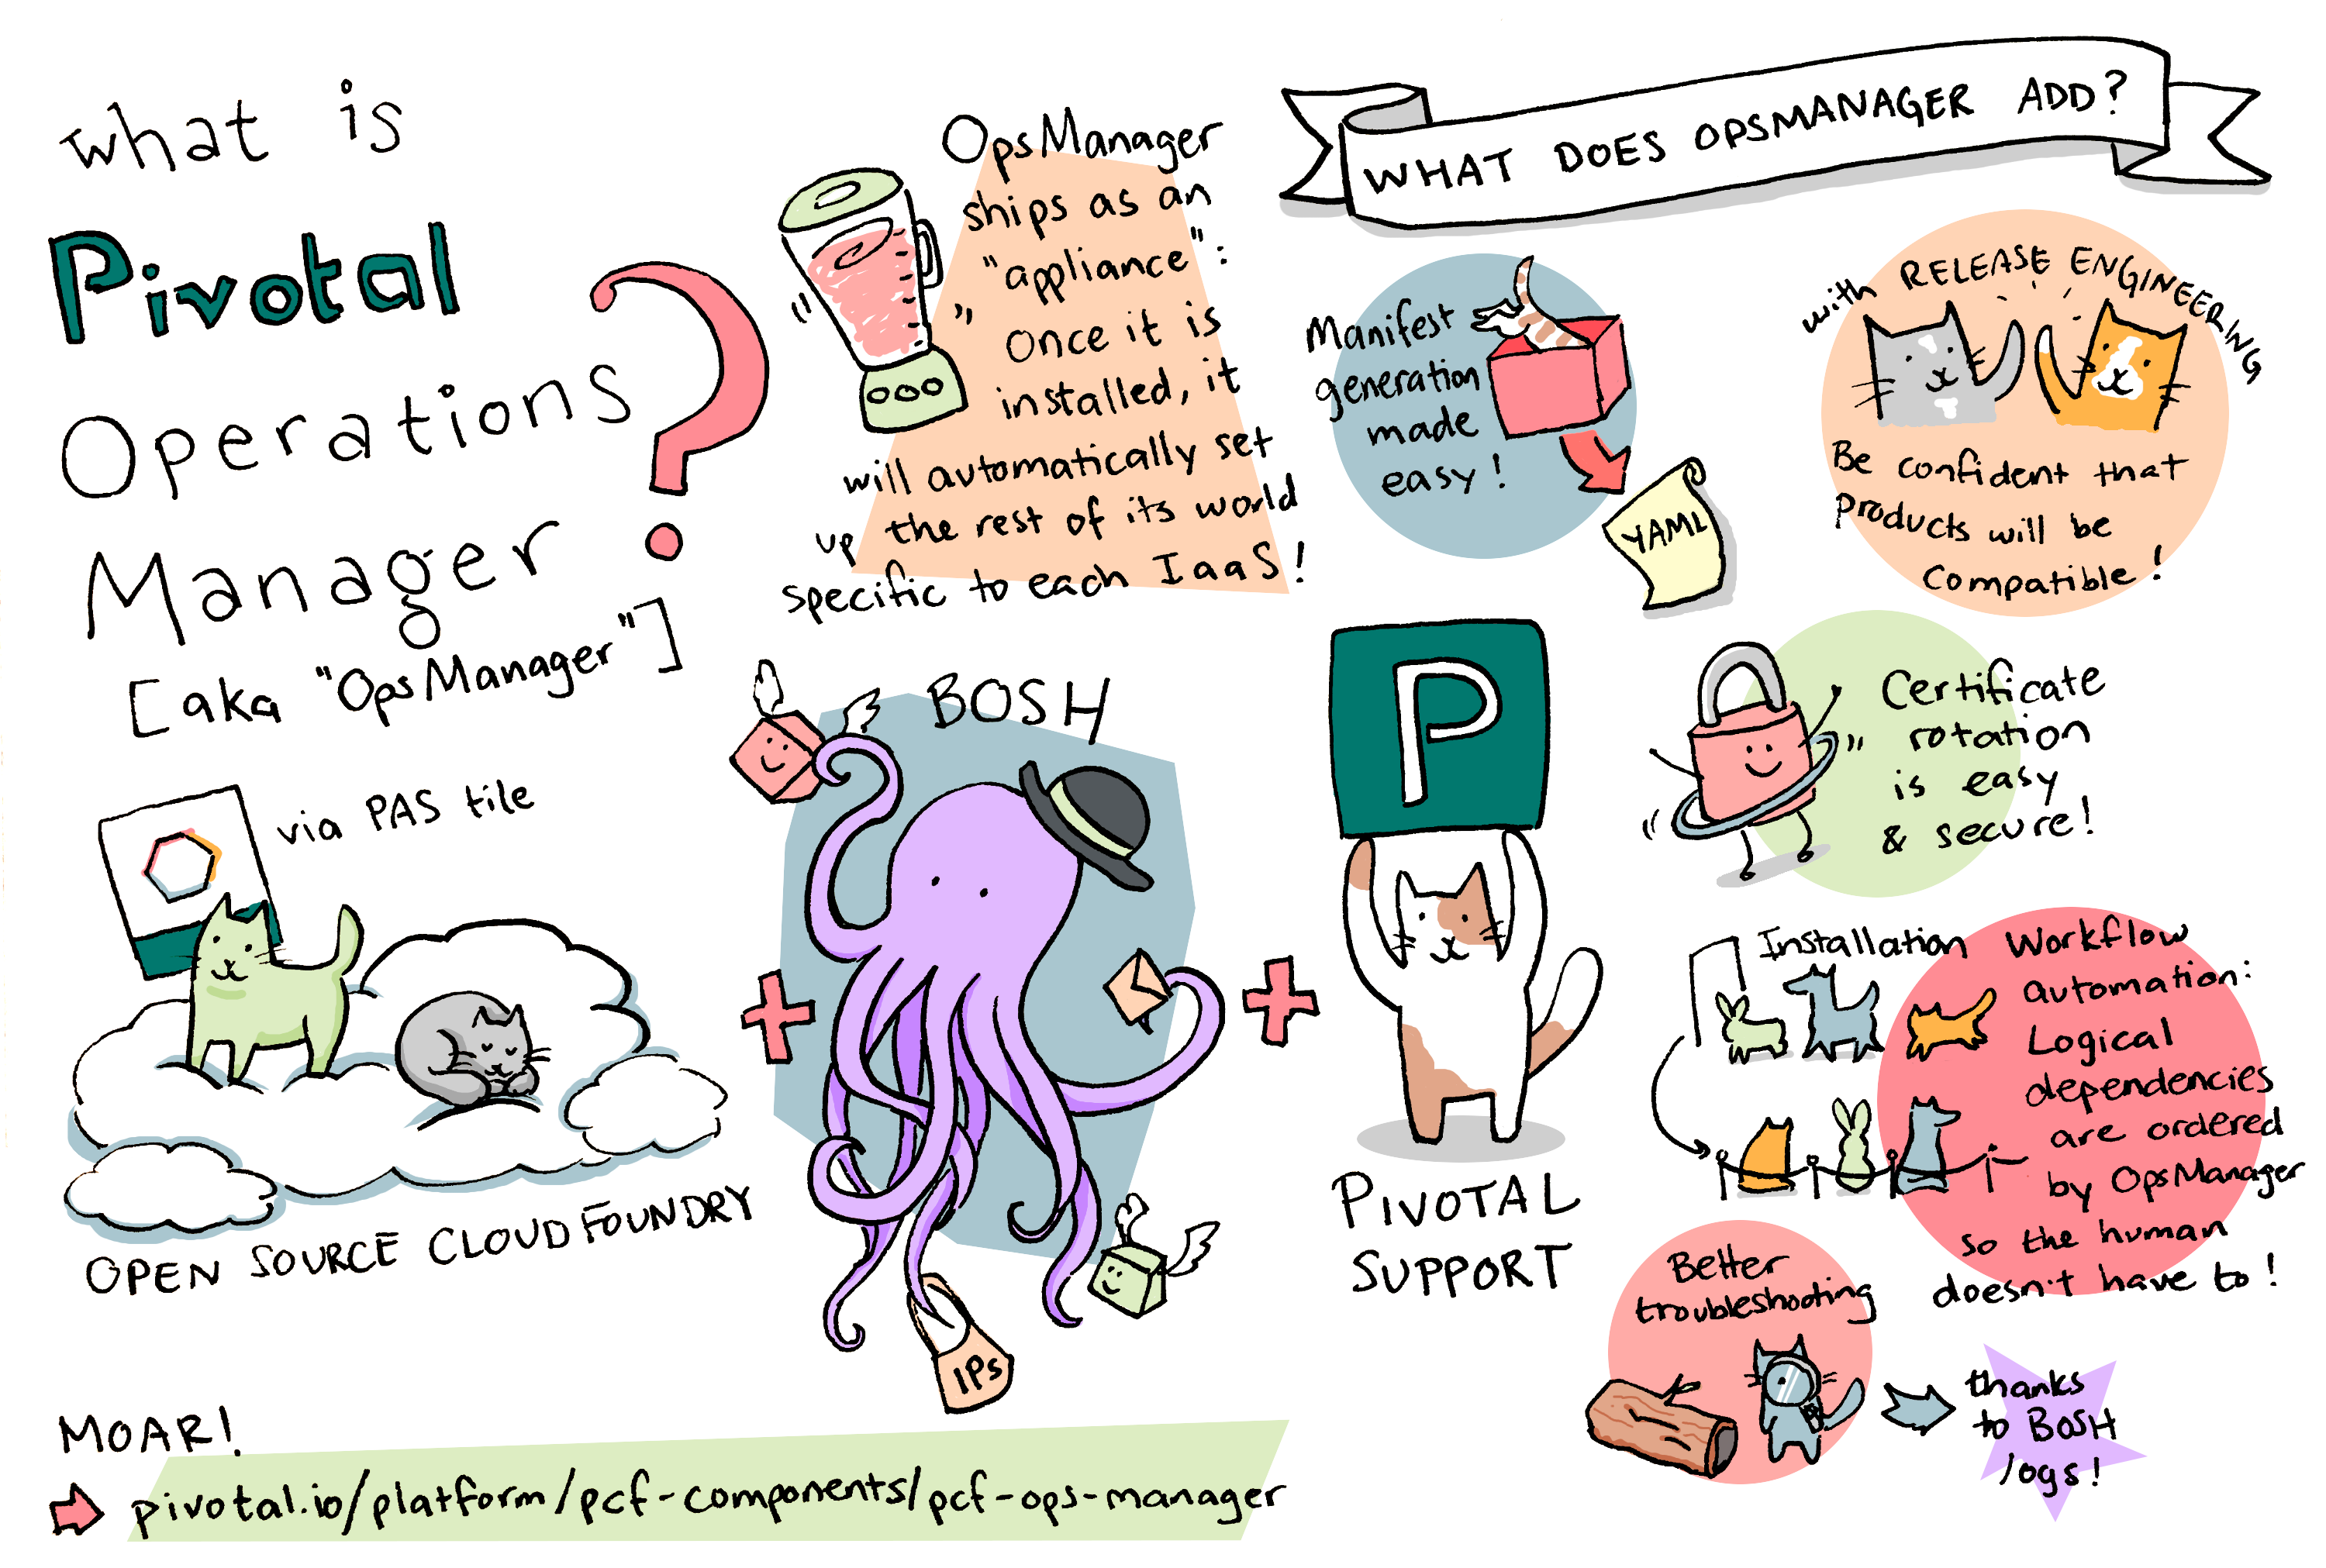 what is
Pivotal
Operations
Manager
[aka "OpsManager"]
?
OpsManager
ships as an
"appliance":
Once it is
installed, it
will automatically set
up the rest of its world
specific to each IaaS!
via PAS tile
OPEN SOURCE CLOUD FOUNDRY
+
BOSH
IPs
+
P
PIVOTAL
SUPPORT
WHAT DOES OPSMANAGER ADD?
Manifest
generation
made
easy!
YAML
with RELEASE ENGINEERING
Be confident that
products will be
compatible!
Certificate
rotation
is easy
& secure!
Installation Workflow
automation:
Logical
dependencies
are ordered
by OpsManager
so the human
doesn't have to!
Better
troubleshooting
thanks
to BOSH
logs!
MOAR!
pivotal.io/platform/pcf-components/pcf-ops-manager